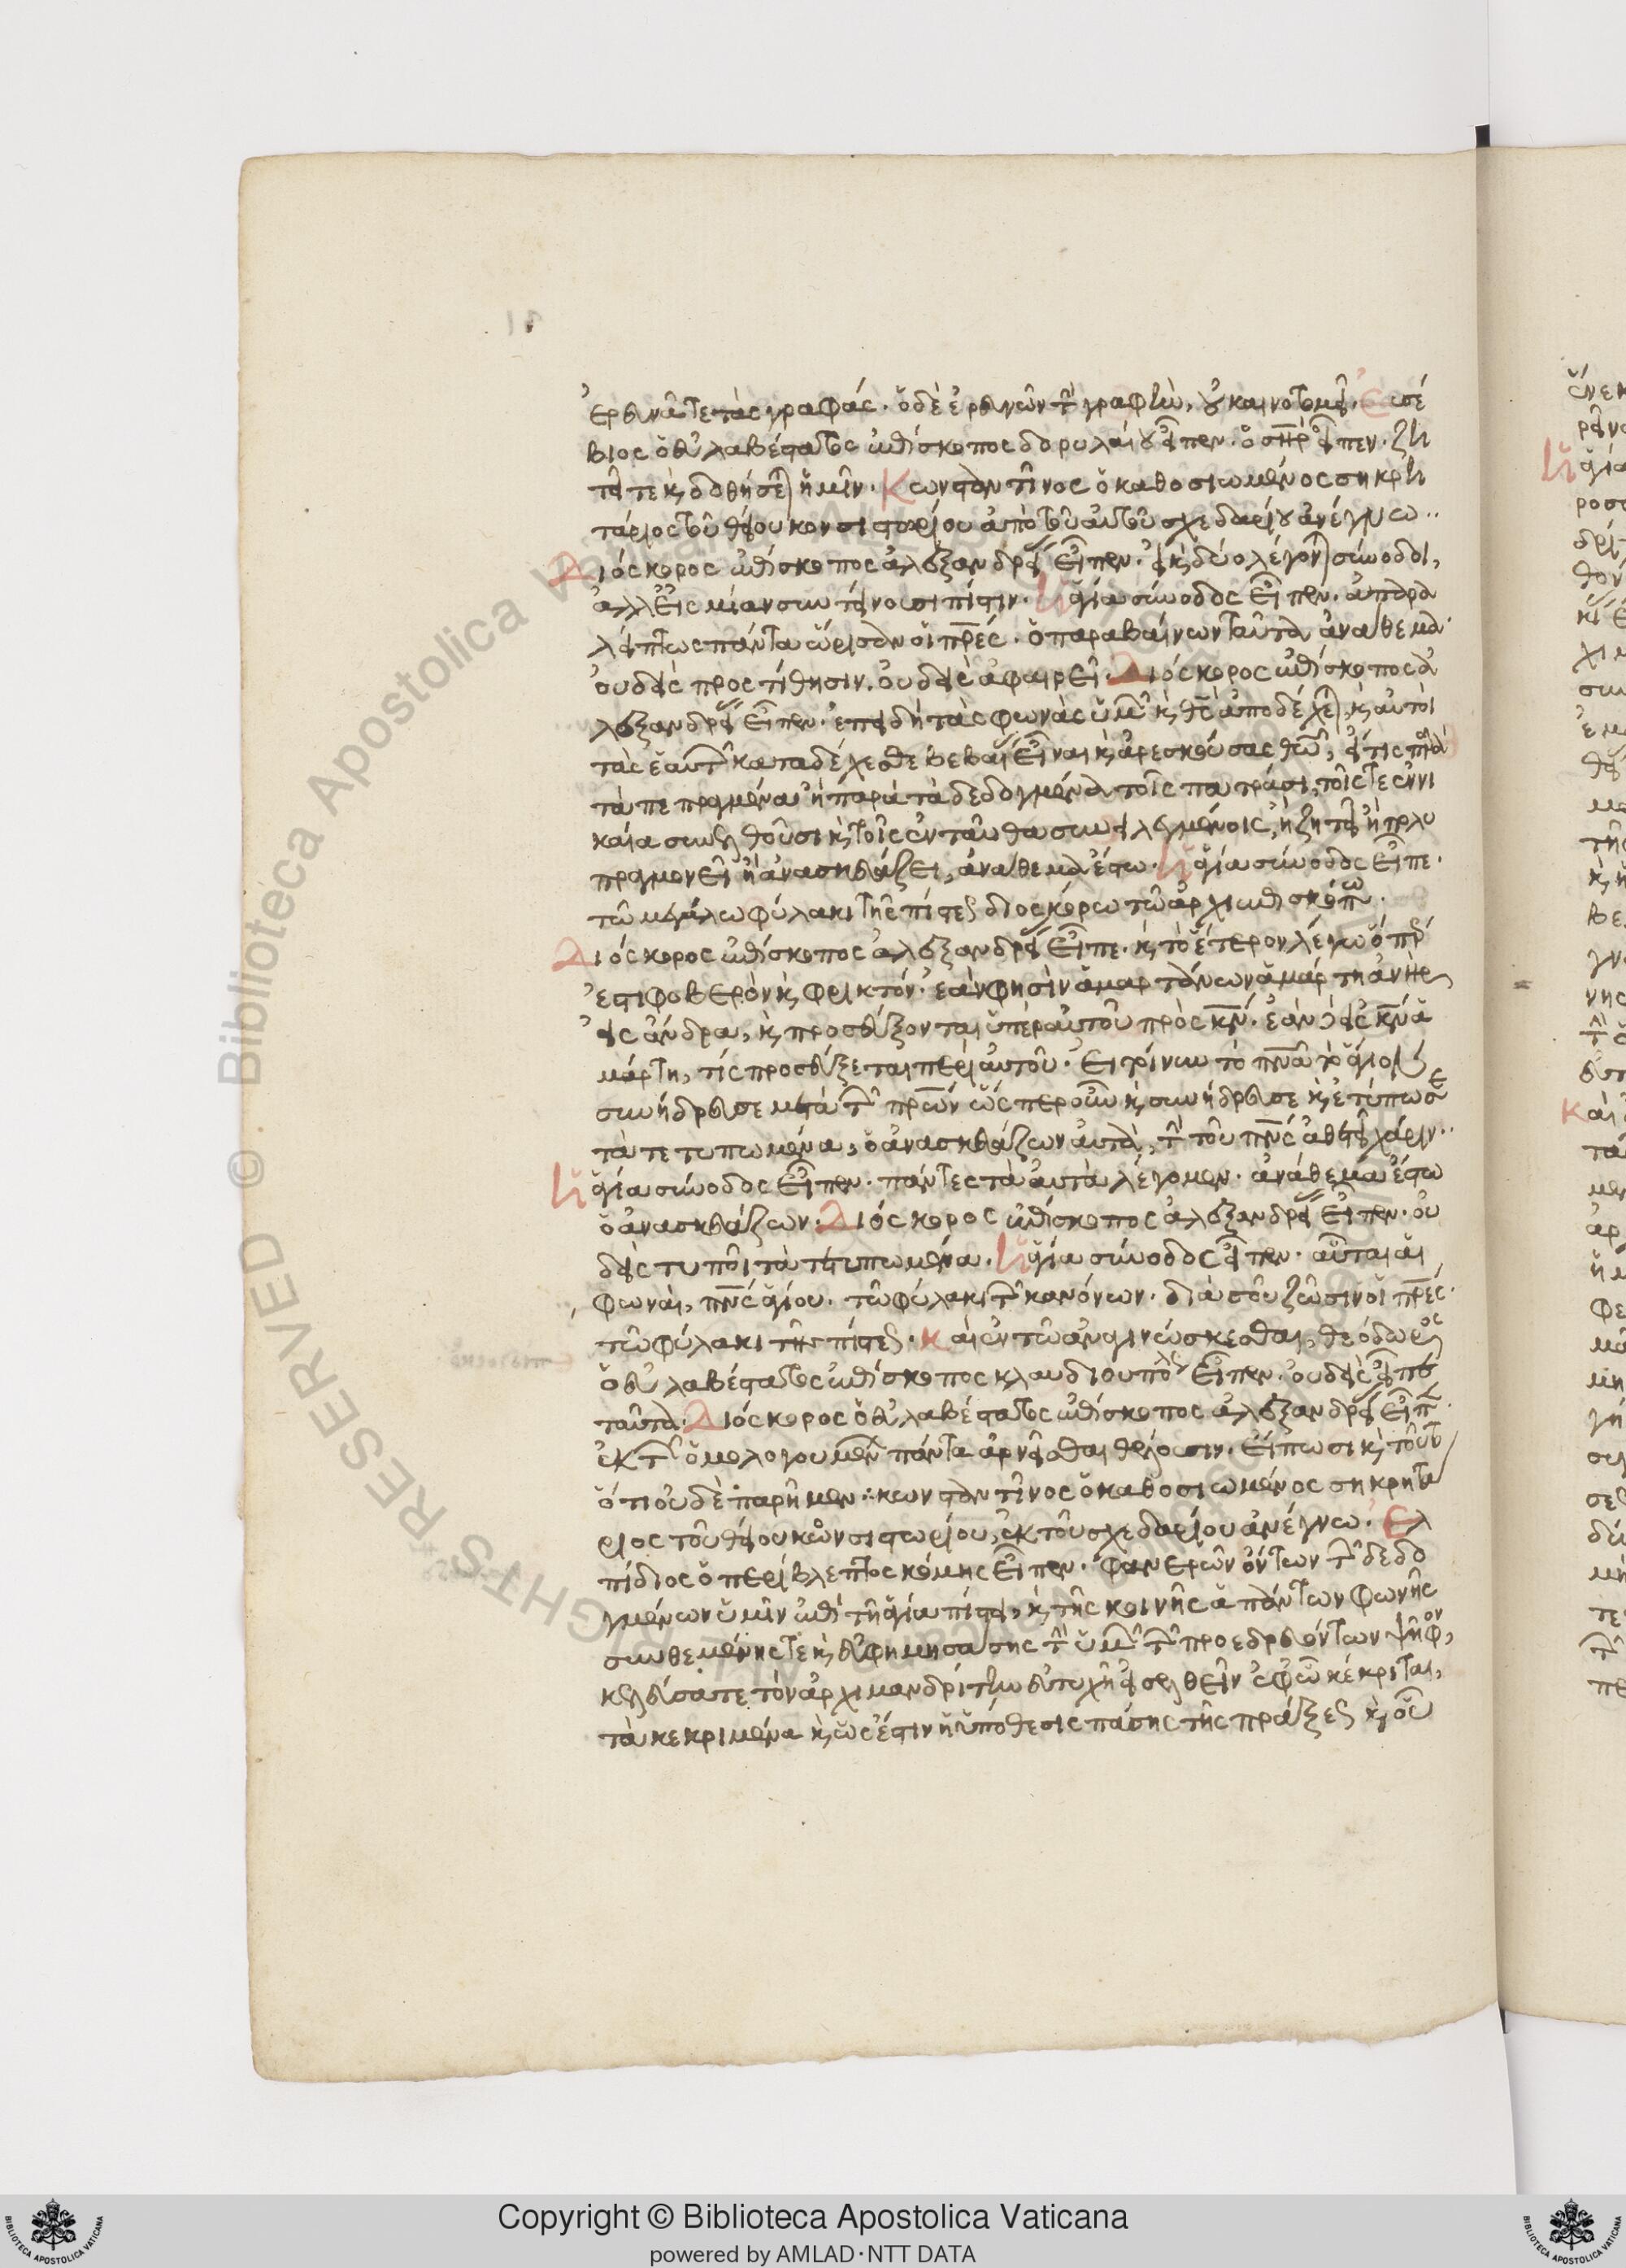 ἐρευνᾶτε τὰς γραφάς. ὁ δὲ ἐρευνῶν τὴν γραφὴν, οὐ καινοτομεῖ. Εὐσέ
βιος ὁ εὐλαβέστατος ἐπίσκοπος δορυλαίου εἶπεν. ὁ σὴρ εἶπεν. ζη
τεῖτε καὶ δοθήσεται ἡμῖν. Κωνσταντῖνος ὁ καθοσιωμένος σηκρη
τάριος τοῦ θείου κονσιστορίου ἀπὸ τοῦ αὐτοῦ σχεδαρίου ἀνέγνω..
Διόσκορος ἐπίσκοπος ἀλεξανδρείας εἶπεν. εἰ καὶ δύο λέγονται σύνοδοι,
ἀλλ' εἰς μίαν συντείνουσι πίστιν. Ἡ ἁγία σύνοδος εἶπεν. ἀπαρα
λείπτως πάντα ὥρισαν οἱ πρες. ὁ παραβαίνων ταῦτα ἀνάθεμα.
οὐδεὶς προστίθησιν. οὐδεὶς ἀφαιρεῖ. Διόσκορος ἐπίσκοπος ἀ
λεξανδρείας εἶπεν. ἐπειδὴ τὰς φωνὰς ὑμῶν καὶ θς ἀποδέχεται, καὶ αὐτοὶ
τὰς ἑαυτῶν καταδέχεσθε βεβαίας εἶναι καὶ ἀρεσκούσας θεῶ, εἴ τις παρὰ
τὰ πεπραγμένα ἢ παρὰ τὰ δεδογμένα τοῖς πατράσι, τοῖς τε ἐν νι
καία συνελθοῦσι καὶ τοῖς ἐνταῦθα συνειλεγμένοις, ἢ ζητεῖ ἢ πολυ
πραγμονεῖ ἢ ἀνασκευάζει, ἀνάθεμα ἔστω. Ἡ ἁγία σύνοδος εἶπε.
τῶ μεγάλω φύλακι τῆς πίστεως διοσκόρω τῶ ἀρχιεπισκόπω.
Διόσκορος ἐπίσκοπος ἀλεξανδρείας εἶπε. καὶ τὸ ἕτερον λέγω ὅπερ
ἐστι φοβερὸν καὶ φρικτόν. ἐὰν φησὶν ἁμαρτάνων ἁμάρτη ἀνὴρ
εἰς ἄνδρα, καὶ προσεύξονται ὑπὲρ αὐτοῦ πρὸς κν. ἐὰν δὲ εἰς κν ἁ
μάρτη, τίς προσεύξεται περὶ αὐτοῦ. εἰ τοίνυν τὸ πνα τὸ ἅγιον
συνήδρευσε μετὰ τῶν πρων ὥσπερ οὖν καὶ συνήδρευσε καὶ ἐτύπωσε
τὰ τετυπωμένα, ὁ ἀνασκευάζων αὐτὰ, τὴν τοῦ πνς ἀθετεῖ χάριν..
Ἡ ἁγία σύνοδος εἶπεν. πάντες τὰ αὐτὰ λέγομεν. ἀνάθεμα ἔστω
ὁ ἀνασκευάζων. Διόσκορος ἐπίσκοπος ἀλεξανδρείας εἶπεν. οὐ
δεὶς τυποῖ τὰ τετυπωμένα. Ἡ ἁγία σύνοδος εἶπεν. αὗται αἱ
φωναὶ, πνς ἁγίου. τῶ φύλακι τῶν κανόνων. διὰ σοῦ ζῶσιν οἱ πρες.
τῶ φύλακι τῆς πίστεως. καὶ ἐν τῶ ἀναγινώσκεσθαι, θεόδωρος
ὁ εὐλαβέστατος ἐπίσκοπος κλαυδιουπόλεως εἶπεν. οὐδεὶς εἶπε
ταῦτα. Διόσκορος ὁ εὐλαβέστατος ἐπίσκοπος ἀλεξανδρείας εἶπεν.
ἐκ τῶν ὁμολογουμένων πάντα ἀρνεῖσθαι θέλουσιν. εἴπωσι καὶ τοῦτο
ὅτι οὐδὲ παρῆμεν. κωνσταντῖνος ὁ καθοσιωμένος σηκρητά
ριος τοῦ θείου κωνσιστωρίου, ἐκ τοῦ σχεδαρίου ἀνέγνω. Ἐλ
πίδιος ὁ περίβλεπτος κόμης εἶπεν. φανερῶν ὄντων τῶν δεδο
γμένων ὑμῖν ἐπὶ τῆ ἁγία πίστει, καὶ τῆς κοινῆς ἁπάντων φωνῆς
συνθεμένης τε καὶ εὐφημησάσης τὴν ὑμῶν τῶν προεδρευόντων ψῆφον,
κελεύσατε τὸν ἀρχιμανδρίτην εὐτυχῆ εἰσελθεῖν ἐφ' ὧ κέκριται,
τὰ κεκριμένα καὶ ὥς ἐστιν ἡ ὑπόθεσις πάσης τῆς πράξεως καὶ οὗ